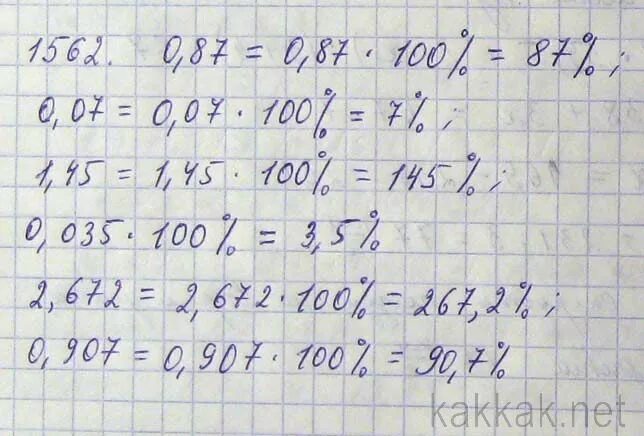 1562. 0,87 = 0,87 · 100% = 87%;
0,07 = 0,07 · 100% = 7%;
1,45 = 1,45 · 100% = 145%;
0,035 · 100% = 3,5%
2,672 = 2,672 · 100% = 267,2%;
0,907 = 0,907 · 100% = 90,7%
kakkak.net